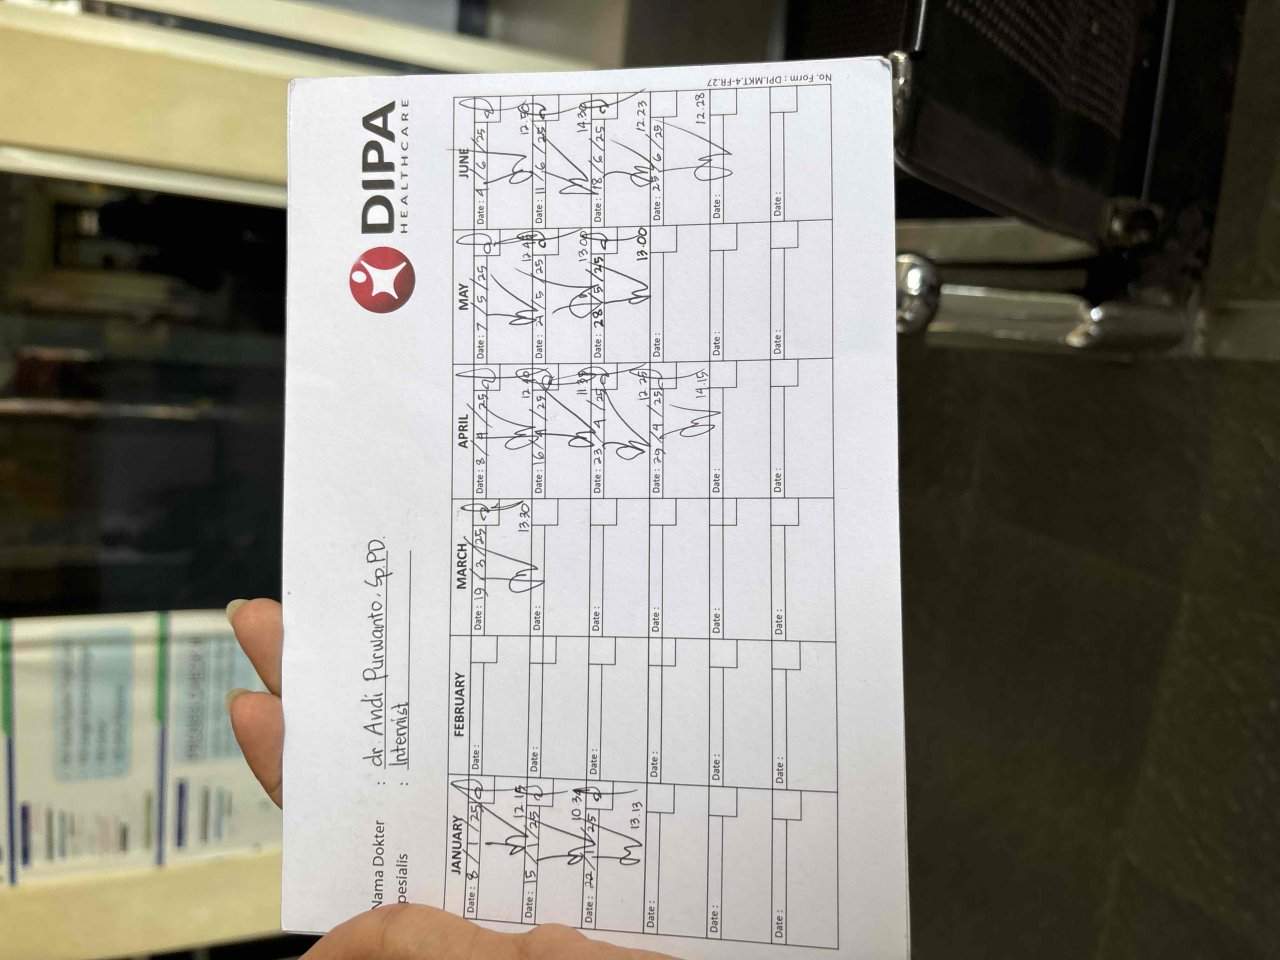 DIPA
HEALTHCARE
Nama Dokter : dr Andi Purwanto. Sp.PD.
pesialis : Internist
JANUARY FEBRUARY MARCH APRIL MAY JUNE
Date : 8 / 1 / 25 Date : Date : 19 / 3 / 25 Date : 8 / 4 / 25 Date : 7 / 5 / 25 Date : 4 / 6 / 25
12.15 13.30
Date : 15 / 1 / 25 Date : Date : Date : 16 / 4 / 25 Date : 5 / 25 Date : 11 / 6 / 25
13.00 14.30
Date : 22 / 1 / 25 Date : Date : Date : 23 / 4 / 25 Date : 28 / 5 / 25 Date : 18 / 6 / 25
13.13 12.25 13.00 12.23
Date : Date : Date : Date : 29 / 4 / 25 Date : Date : 25 / 6 / 25
14.15 12.28
Date : Date : Date : Date : Date : Date :
Date : Date : Date : Date : Date : Date :
No. Form : DPI.MKT.4-FR.27